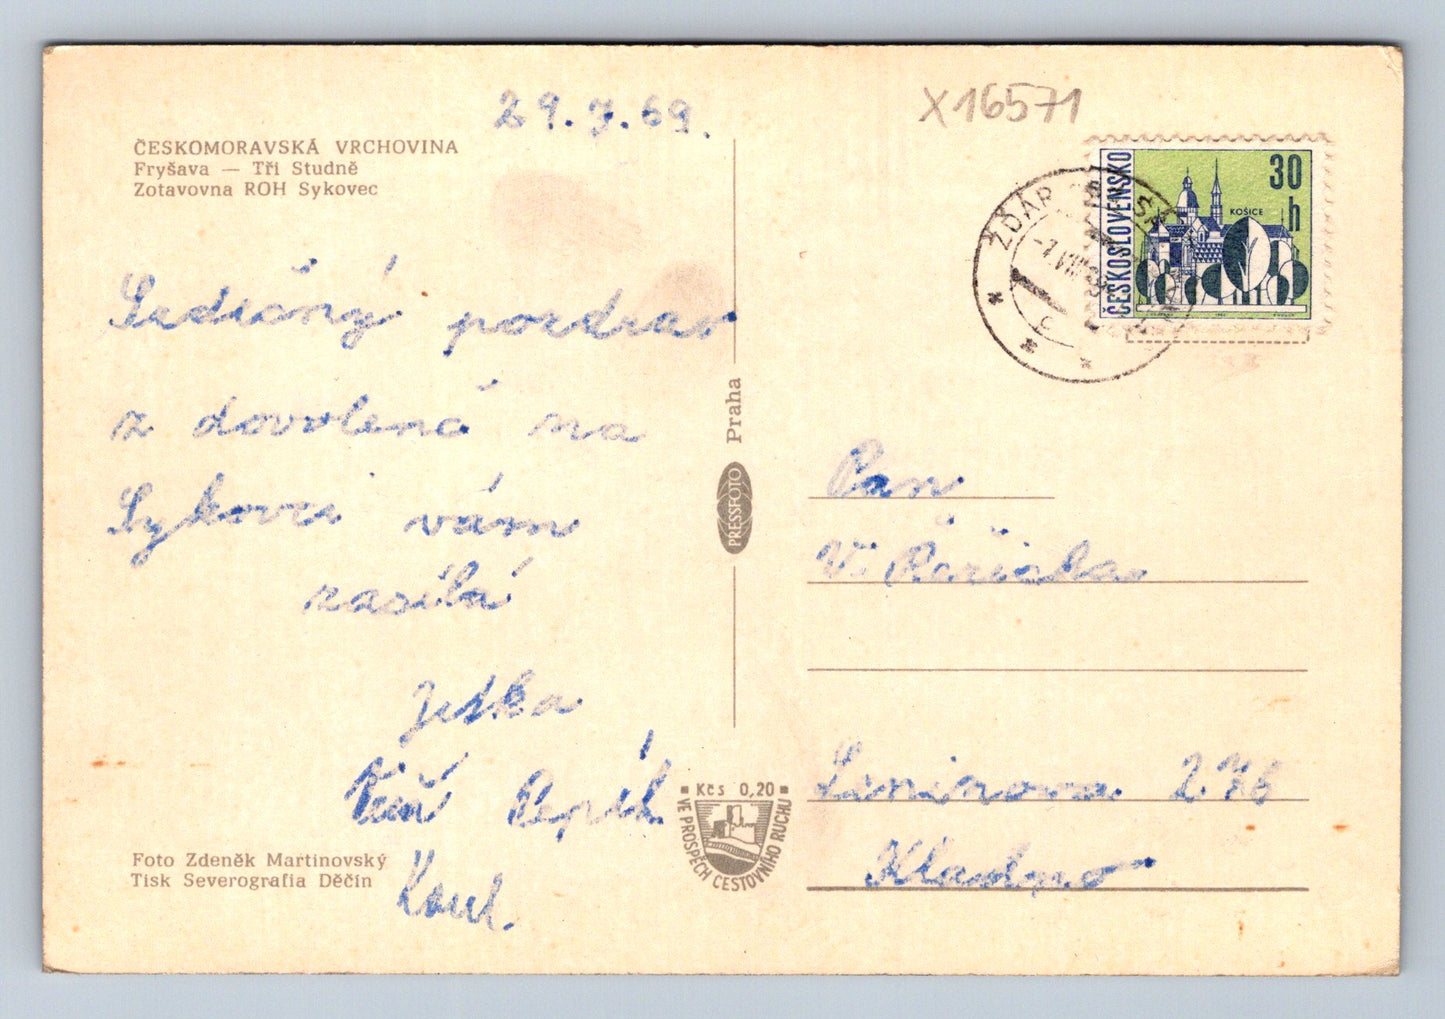 29.7.69.
X16571
ČESKOMORAVSKÁ VRCHOVINA
Fryšava — Tři Studně
Zotavovna ROH Sykovec
ČESKOSLOVENSKO
30
h
KOŠICE
ŽĎÁR
Srdečný pozdrav
z dovolené na
Sykovci vám
zasílá
Jitka
Pepík
Praha
PRESSFOTO
Pan
V.
Leninova 276
Kladno
Kčs 0,20
VE PROSPĚCH CESTOVNÍHO RUCHU
Foto Zdeněk Martinovský
Tisk Severografia Děčín